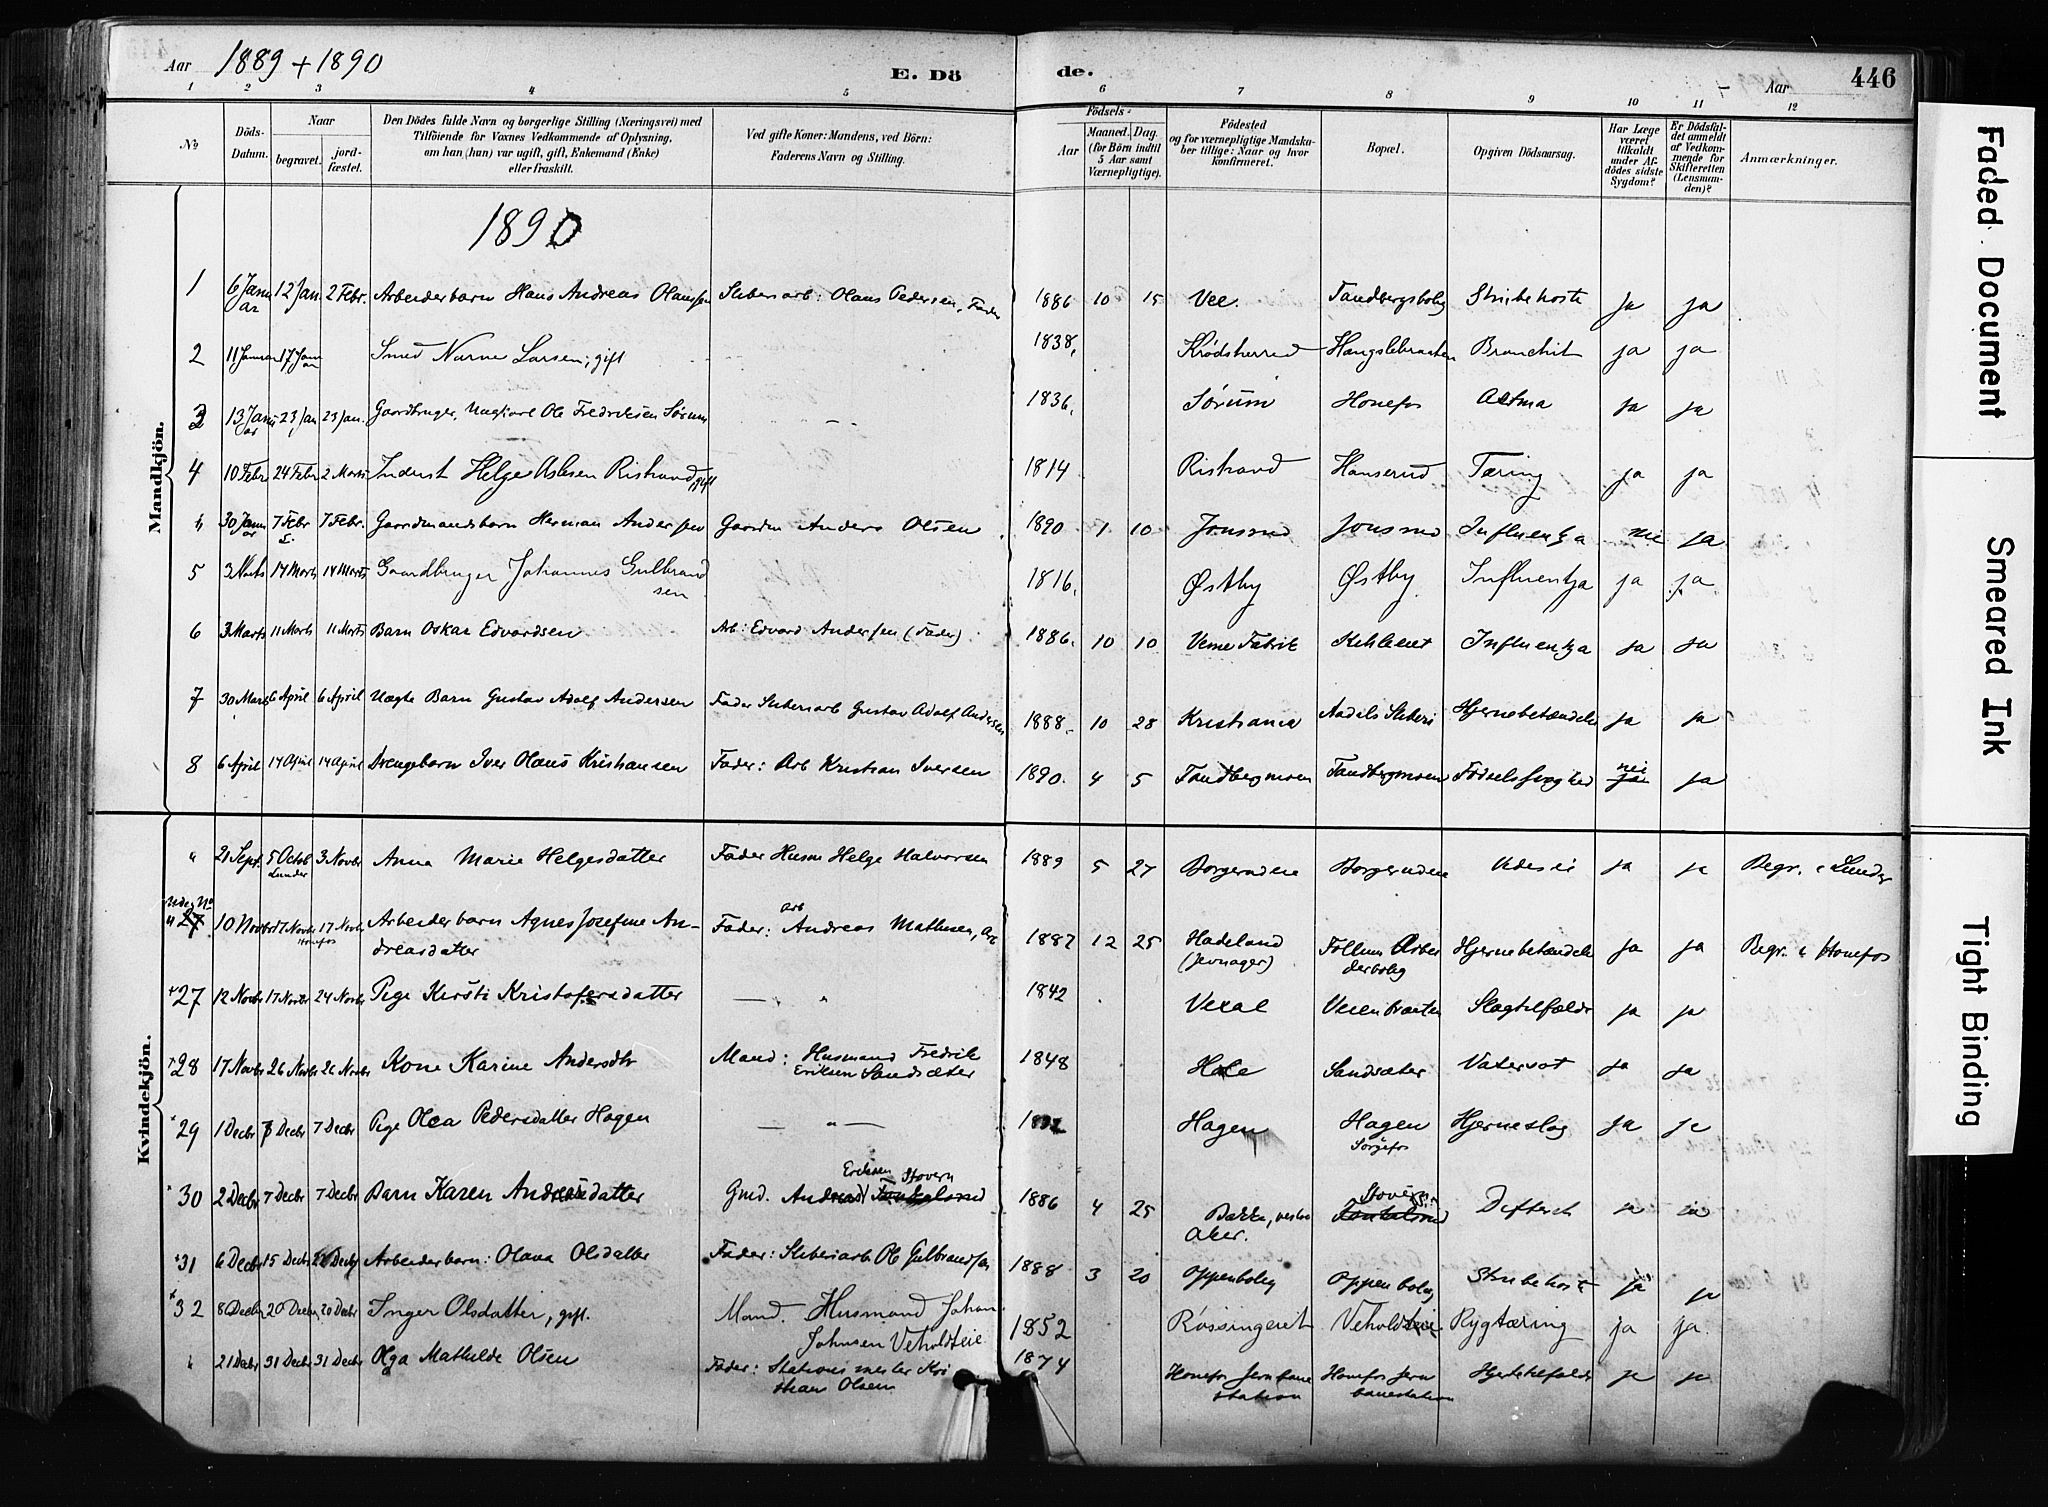 Aar 1889 + 1890 E. Döde. Aar 446
1 2 3 4 5 6 7 8 9 10 11 12
№
Döds-Datum.
Naar
begravet.
jord-fæstet.
Den Dödes fulde Navn og borgerlige Stilling (Næringsvei) med
Tilföiende for Voxnes Vedkommende af Oplysning,
om han (hun) var ugift, gift, Enkemand (Enke)
eller fraskilt.
Ved gifte Koner: Mandens, ved Börn:
Faderens Navn og Stilling.
Födsels-
Aar
Maaned. Dag.
(for Börn indtil
5 Aar samt
Værnepligtige).
Födested
og for værnepligtige Mandska-
ber tillige: Naar og hvor
konfirmeret.
Bopæl.
Opgiven Dödsaarsag.
Har Læge
været
tilkaldt
under Af-
dödes sidste
Sygdom?
Er Dödsfal-
det anmeldt
af Vedkom-
mende for
Skifteretten
(Lensman-
den)?
Anmærkninger.
Mandkjön.
1890
1 6 Janu ar 12 Jan 2 Febr. Arbeiderbarn Hans Andreas Olaussen Sliberiarb: Olaus Pedersen, Fader 1886 10 15 Vee. Tandbergsbolig Strubehoste ja ja
2 11 Januar 17 Jan Smed Narve Larsen, gift 1838, Krødsherred Haugslebraaten Bronchit ja ja
3 13 Janu ar 23 Jan 23 Jan. Gaardbruger, Ungkarl Ole Fredriksen Sørum 1836, Sørum Hønefos Astma ja ja
4 10 Febr 24 Febr 2 Marts Inderst Helge Aslesen Ristrand, gift 1814 Ristrand Hanserud Tæring ja ja
" 30 Janu ar 7 Febr 7 Febr. Gaardmandsbarn Herman Andersen Gaardm Anders Olsen 1890 1 10 Jonsrud Jonsrud Influentza nei ja
5 3 Marts 14 Marts 14 Marts Gaardbruger Johannes Gulbrand
sen 1816, Østby Østby Influentza ja ja
6 3 Marts 11 Marts 11 Marts Barn Oskar Edvardsen Arb: Edvard Andersen (Fader) 1886. 10 10 Veme Fabrik Influentza ja ja
7 30 Marts 6 April 6 April Uægte Barn Gustav Adolf Andersen Fader Sliberiarb Gustav Adolf Andersen 1888. 10 28 Kristiania Aadals Sliberi Hjernebetændelse ja ja
8 6 April 14 April 14 April Drengebarn Iver Olaus Kristiansen Fader: Arb Kristian Iversen 1890. 4 5 Tandbergmoen Tandbergmoen Fødselssvaghed nei ja ja
Kvindekjön.
" 21 Sept. 5 Octob Lunder 3 Novbr Anna Marie Helgesdatter Fader Husm Helge Halvorsen 1889 5 27 Borgerudeie Borgerudeie ja ja Begr. i Lunder
Uden No
" 27 10 Novbr 17 Novbr Hønefos 17 Novbr Arbeiderbarn Agnes Josefine An-
dreasdatter Fader: Arb Andreas Mathisen, Arb 1887 12 25 Hadeland
(Jevnager) Follum Arbei
derbolig Hjernebetændelse ja ja Begr. i Hønefos
+27 12 Novbr 17 Novbr 24 Novbr Pige Kirsti Kristofersdatter — " 1842 Vexal Veienbraaten Slagtilfælde ja ja
+28 17 Novbr 26 Novbr 26 Novbr Kone Karine Andersdtr Mand: Husmand Fredrik
Eriksen Sandsæter 1848 Hole Sandsæter Vatersot ja ja
+29 1 Decbr 7 Decbr 7 Decbr Pige Olea Pedersdatter Hagen — " — Hagen Hagen
Sørgefos Hjerneslag ja ja
+30 2 Decbr 7 Decbr 7 Decbr Barn Karen Andreasdatter Gmd. Andreas Eriksen Stovern 1886 4 25 Bakke, vestre
Aker. Stovern Difterit ja ja
+31 6 Decbr 15 Decbr 22 Decbr Arbeiderbarn: Olava Olsdatter Fader: Sliberiarb Ole Gulbrandsen 1888 3 20 Oppenbolig Oppenbolig Strubehoste ja ja
+32 8 Decbr 20 Decbr 20 Decbr Inger Olsdatter, gift. Mand. Husmand Johan
Johnsen Veholdteie 1852 Røssingeret Veholdteie Rygtæring ja ja.
" 21 Decbr 31 Decbr 31 Decbr Olga Mathilde Olsen Fader: Stationsmester Kri
stian Olsen 1874 Hønefos Jernbane
station Hønefos Jern
banestation Hjertetilfælde ja ja
Faded Document
Smeared Ink
Tight Binding